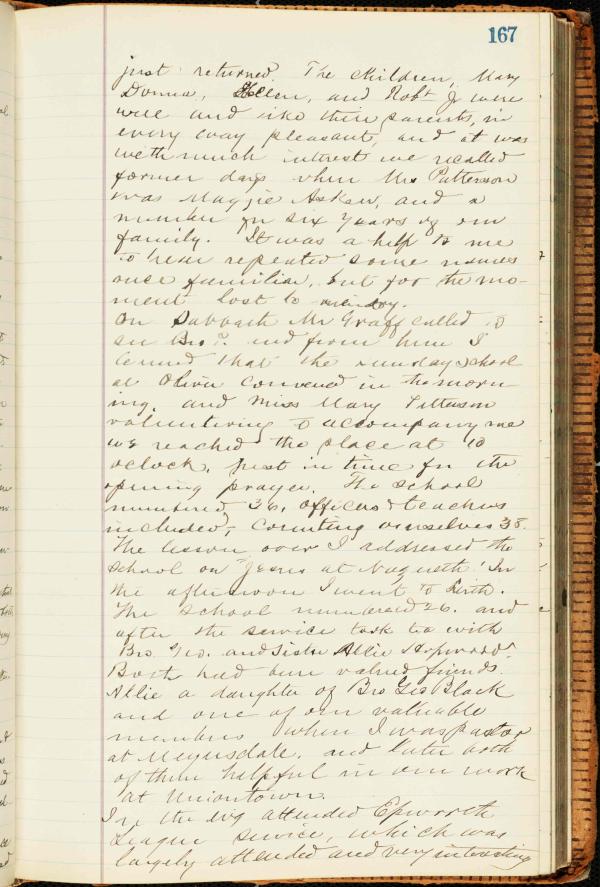 167
just returned. The children, Mary
Donna, Hellen, and Robt Jr were
well and like their parents, in
every way pleasant, and it was
with much interest we recalled
former days when Mrs Patterson
was Maggie Askew, and a
member for six years of our
family. It was a help to me
to hear repeated some names
once familiar, but for the mo-
ment lost to memory.
On Sabbath Mr Graff called to
see Bro P. and from him I
learned that the sunday school
at Oliver convened in the morn
ing. and Miss Mary Patterson
volunteering to accompany me
we reached the place at 10
oclock, just in time for the
opening prayer. The school
numbered 36, officers & teachers
included, counting ourselves 38.
The lesson over I addressed the
school on "Jesus at Nazareth" In
the afternoon I went to
The school numbered 26. and
after the service took tea with
Bro. Geo. and Sister Allie Hopwood.
Both had been valued friends.
Allie a daughter of Bro Geo Black
and one of our valuable
members when I was pastor
at Meyersdale. and later both
of them helpful in our work
at Uniontown.
In the evg attended Epworth
League service, which was
largely attended and very interesting